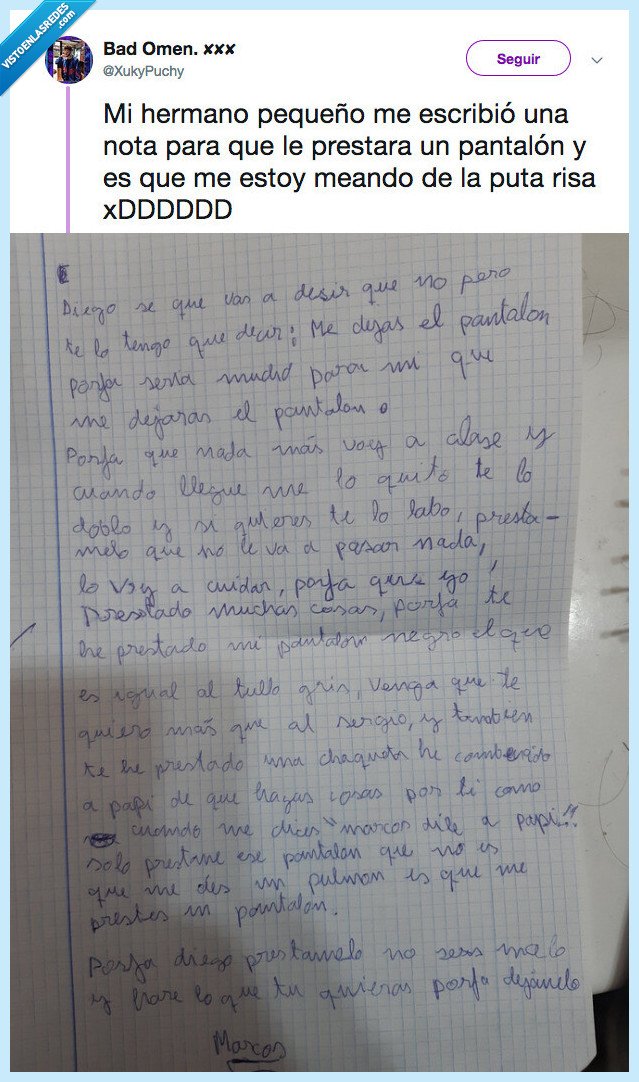 VISTOENLASREDES
.com
Bad Omen. ✘✘✘
@XukyPuchy
Seguir
Mi hermano pequeño me escribió una
nota para que le prestara un pantalón y
es que me estoy meando de la puta risa
xDDDDDD
Diego se que vas a desir que no pero
te lo tengo que decir: Me dejas el pantalon
porfa seria mucho para mi que
me dejaras el pantalon
Porfa que nada más voy a clase y
cuando llegue me lo quito te lo
doblo y si quieres te lo labo, presta-
melo que no le va a pasar nada,
lo voy a cuidar, porfa que yo
prestado muchas cosas, porfa te
he prestado mi pantalon negro el que
es igual al tullo gris, venga que te
quiero más que al sergio, y tambien
te he prestado una chaqueta he combencido
a papi de que hagas cosas por ti como
cuando me dices "marcos dile a papi"
solo prestame ese pantalon que no es
que me des un pulmon es que me
prestes un pantalon.
Porfa diego prestamelo no seas malo
y hare lo que tu quieras porfa dejámelo
Marcos